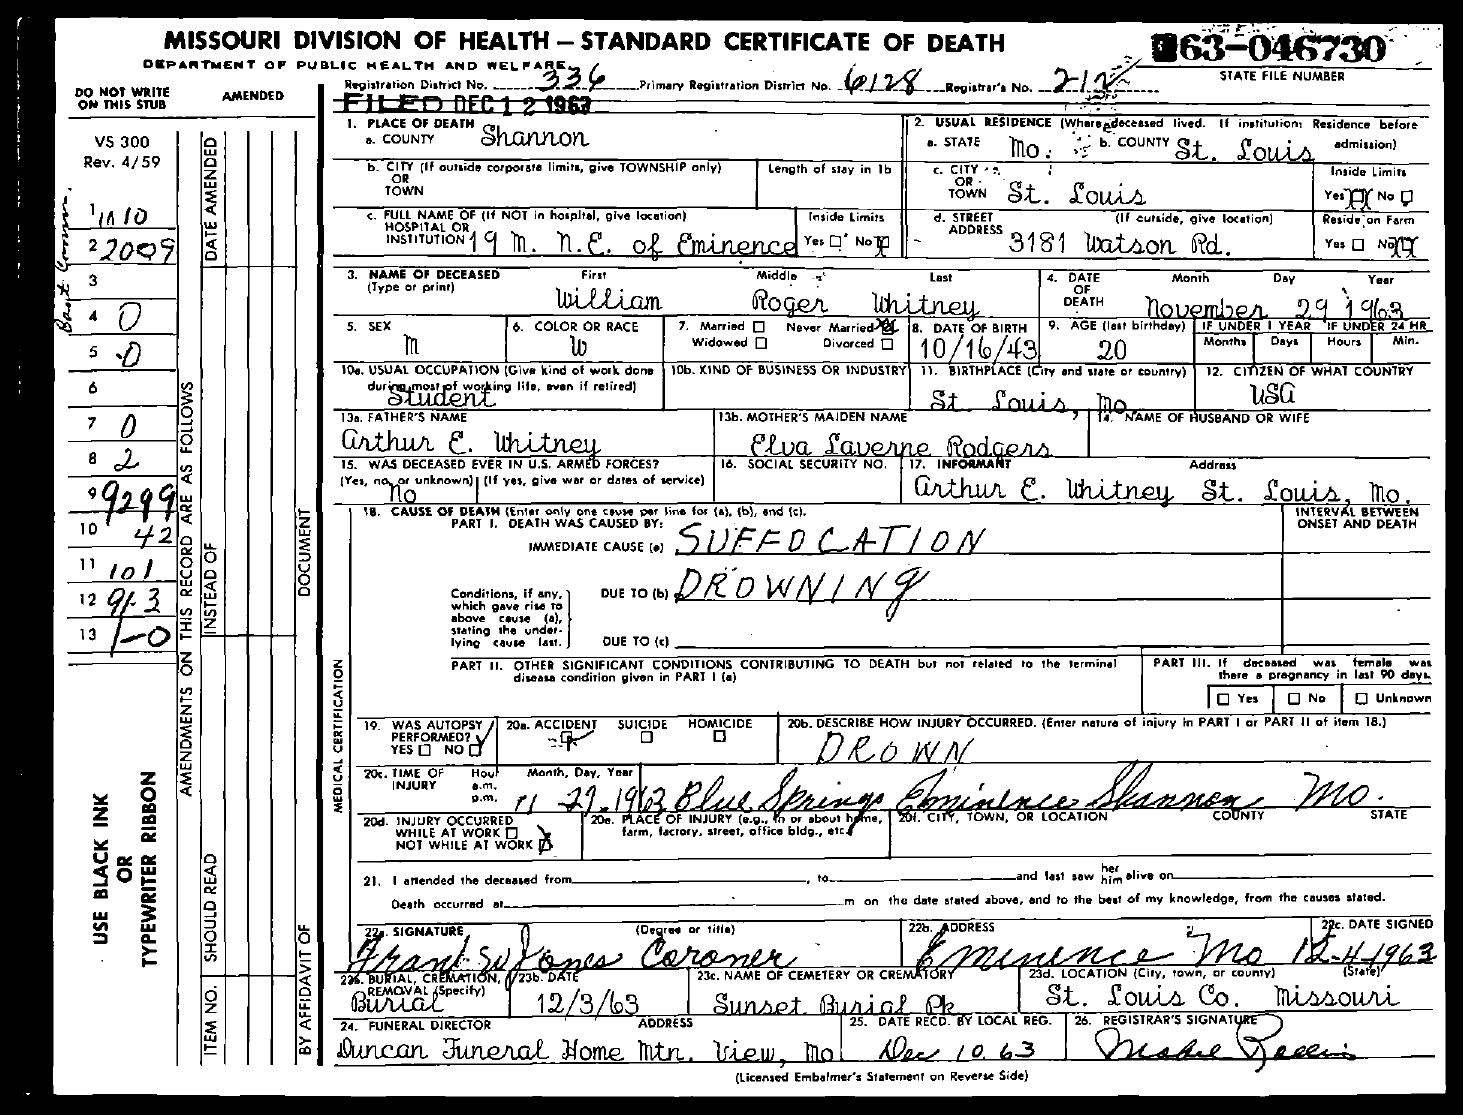 MISSOURI DIVISION OF HEALTH — STANDARD CERTIFICATE OF DEATH
63-046730
DEPARTMENT OF PUBLIC HEALTH AND WELFARE
STATE FILE NUMBER
Registration District No. 336 Primary Registration District No. 6128 Registrar's No. 212
FILED DEC 12 1963
DO NOT WRITE ON THIS STUB
AMENDED
VS 300
Rev. 4/59
DATE AMENDED
1
2 2009
3
4 0
5 0
6
7 0
8 2
9 9299
10 42
11 101
12 91-3
13 1-0
AMENDMENTS ON THIS RECORD ARE AS FOLLOWS
INSTEAD OF
DOCUMENT
SHOULD READ
ITEM NO.
BY AFFIDAVIT OF
USE BLACK INK
OR
TYPEWRITER RIBBON
MEDICAL CERTIFICATION
1. PLACE OF DEATH
a. COUNTY Shannon
2. USUAL RESIDENCE (Where deceased lived. If institution: Residence before admission)
a. STATE Mo. b. COUNTY St. Louis
b. CITY (If outside corporate limits, give TOWNSHIP only) OR TOWN
Length of stay in 1b
c. CITY OR TOWN St. Louis
Inside Limits
Yes No
c. FULL NAME OF (If NOT in hospital, give location) HOSPITAL OR INSTITUTION 19 M. N.E. of Eminence
Inside Limits
Yes No
d. STREET ADDRESS (If outside, give location)
3181 Watson Rd.
Reside on Farm
Yes No
3. NAME OF DECEASED (Type or print)
First Middle Last
William Roger Whitney
4. DATE OF DEATH
Month Day Year
November 29 1963
5. SEX
M
6. COLOR OR RACE
W
7. Married Never Married
Widowed Divorced
8. DATE OF BIRTH
10/16/43
9. AGE (last birthday)
20
IF UNDER 1 YEAR
Months Days
IF UNDER 24 HR.
Hours Min.
10a. USUAL OCCUPATION (Give kind of work done during most of working life, even if retired)
Student
10b. KIND OF BUSINESS OR INDUSTRY
11. BIRTHPLACE (City and state or country)
St. Louis, Mo.
12. CITIZEN OF WHAT COUNTRY
USA
13a. FATHER'S NAME
Arthur E. Whitney
13b. MOTHER'S MAIDEN NAME
Elva Laverne Rodgers
14. NAME OF HUSBAND OR WIFE
15. WAS DECEASED EVER IN U.S. ARMED FORCES?
(Yes, no, or unknown) (If yes, give war or dates of service)
No
16. SOCIAL SECURITY NO.
17. INFORMANT Address
Arthur E. Whitney St. Louis, Mo.
18. CAUSE OF DEATH (Enter only one cause per line for (a), (b), and (c).
PART I. DEATH WAS CAUSED BY:
INTERVAL BETWEEN ONSET AND DEATH
IMMEDIATE CAUSE (a) SUFFOCATION
Conditions, if any, which gave rise to above cause (a), stating the underlying cause last.
DUE TO (b) DROWNING
DUE TO (c)
PART II. OTHER SIGNIFICANT CONDITIONS CONTRIBUTING TO DEATH but not related to the terminal disease condition given in PART I (a)
PART III. If deceased was female was there a pregnancy in last 90 days.
Yes No Unknown
19. WAS AUTOPSY PERFORMED?
YES NO
20a. ACCIDENT SUICIDE HOMICIDE
20b. DESCRIBE HOW INJURY OCCURRED. (Enter nature of injury in PART I or PART II of item 18.)
DROWN
20c. TIME OF INJURY
Hour a.m. p.m.
Month, Day, Year
11 29 1963 Blue Springs Eminence Shannon Mo.
20d. INJURY OCCURRED
WHILE AT WORK
NOT WHILE AT WORK
20e. PLACE OF INJURY (e.g., in or about home, farm, factory, street, office bldg., etc.)
20f. CITY, TOWN, OR LOCATION COUNTY STATE
21. I attended the deceased from , to and last saw her him alive on
Death occurred at m on the date stated above, and to the best of my knowledge, from the causes stated.
22a. SIGNATURE (Degree or title)
Frank S. Jones Coroner
22b. ADDRESS
Eminence Mo
22c. DATE SIGNED
12-4-1963
23a. BURIAL, CREMATION, REMOVAL (Specify)
Burial
23b. DATE
12/3/63
23c. NAME OF CEMETERY OR CREMATORY
Sunset Burial Pk
23d. LOCATION (City, town, or county) (State)
St. Louis Co. Missouri
24. FUNERAL DIRECTOR ADDRESS
Duncan Funeral Home Mtn. View, Mo
25. DATE RECD. BY LOCAL REG.
Dec 10, 63
26. REGISTRAR'S SIGNATURE
(Licensed Embalmer's Statement on Reverse Side)